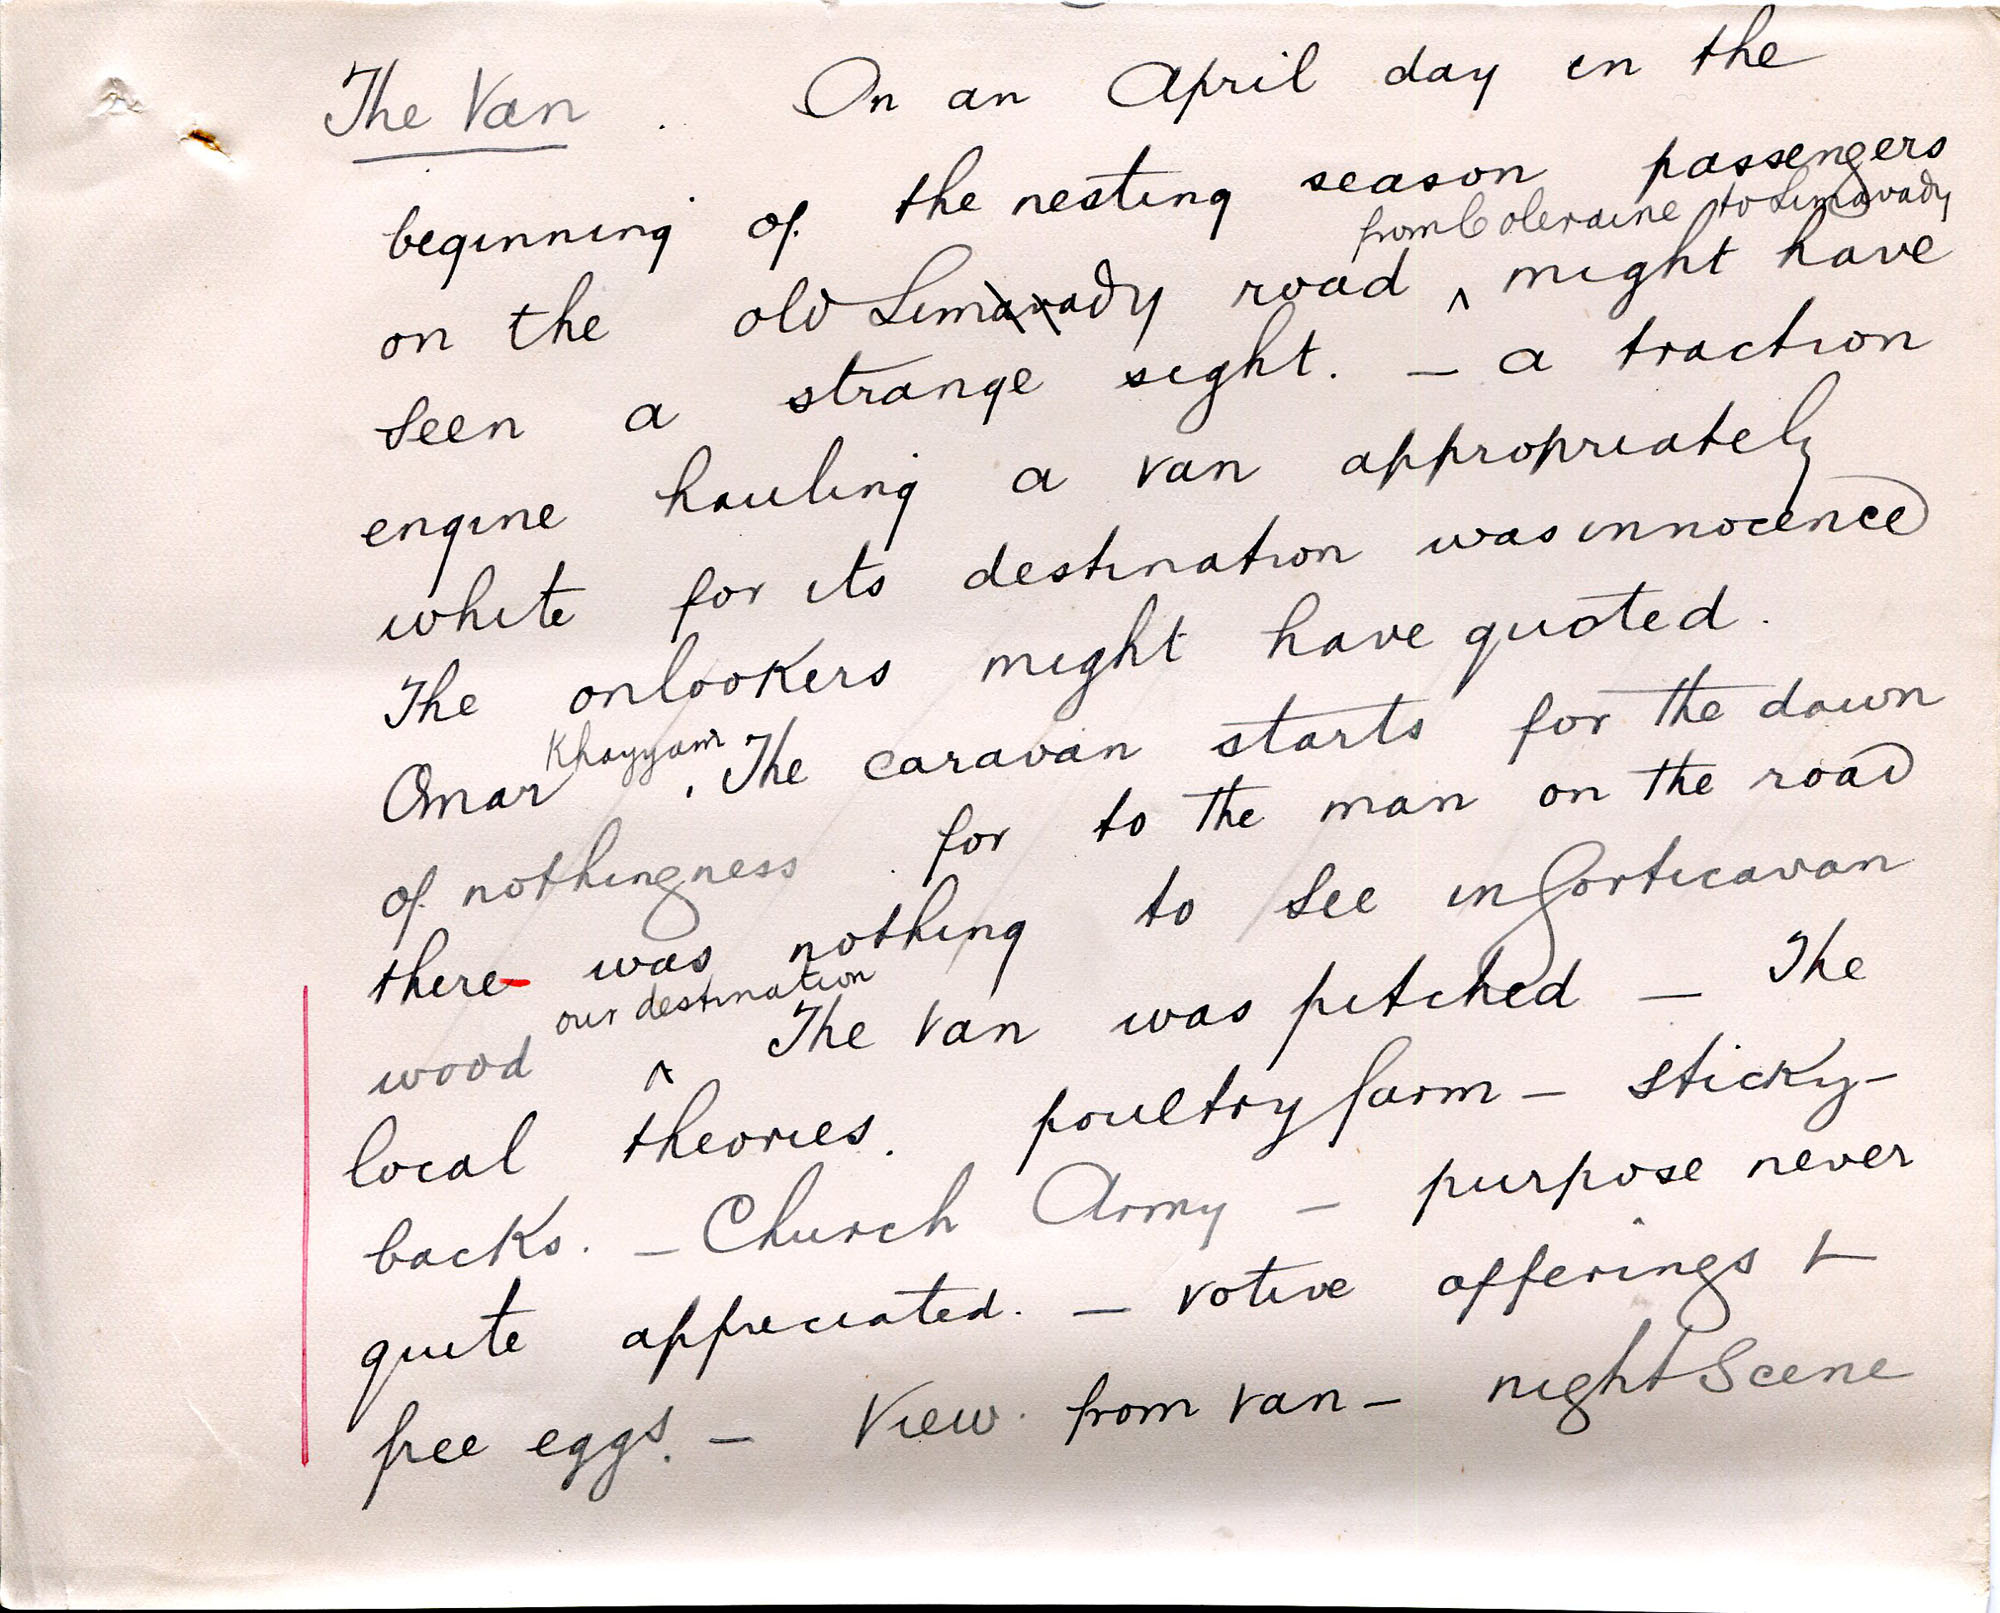 The Van. On an April day in the
beginning of the nesting season passengers
from Coleraine to Limavady
on the old Limavady road ^ might have
seen a strange sight. — a traction
engine hauling a van appropriately
white for its destination was innocence
The onlookers might have quoted.
Khayyam.
Omar , The caravan starts for the dawn
of nothingness . for to the man on the road
there was nothing to see in Gorticavan
our destination
wood ^ The van was pitched — The
local theories. poultry farm — sticky-
backs. — Church Army — purpose never
quite appreciated. — votive offerings &
free eggs. — View from van — night Scene